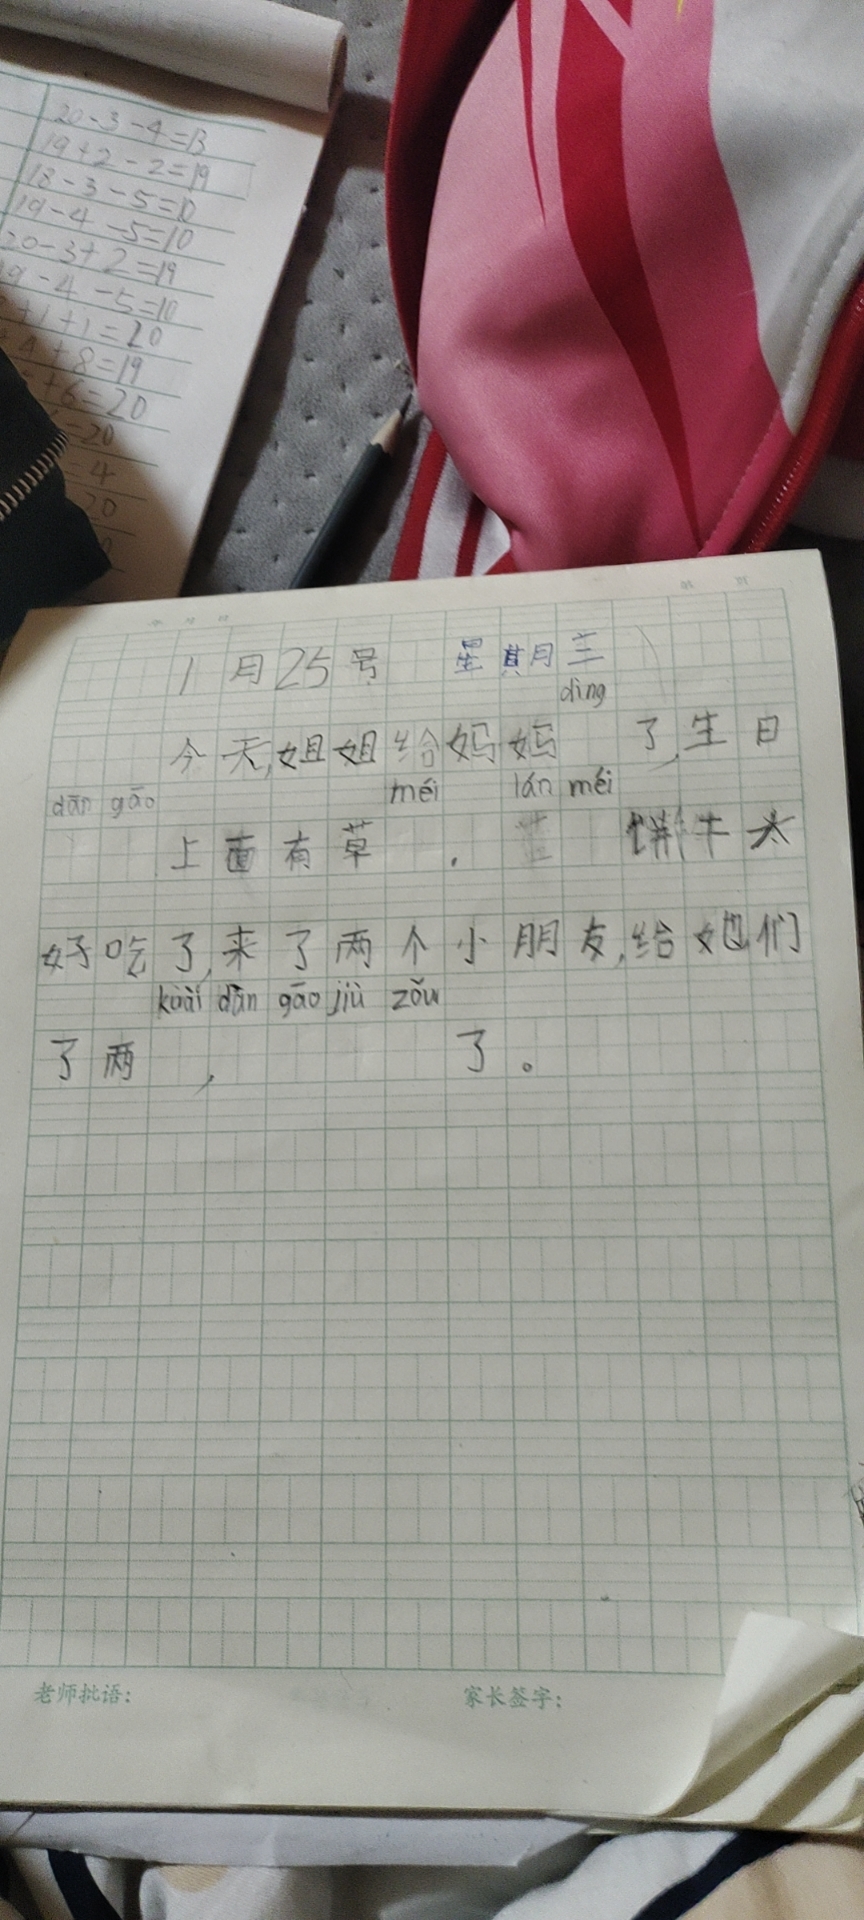 20-3-4=13
19+2-2=19
18-3-5=10
19-4-5=10
20-3+2=19
19-4-5=10
+1+1=20
4+8=19
+6=20
=20
=4
20
0
年 月 日
第 页
1月25号 星期三
dìng
今天,姐姐给妈妈 了,生日
dān gāo méi lán méi
上面有草 . 蓝 饼牛太
好吃了,来了两个小朋友,给她们
kuài dān gāo jiù zǒu
了两 , 了。
老师批语:
家长签字: